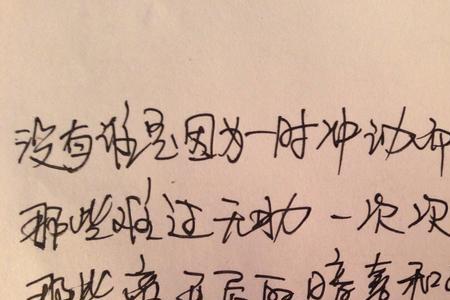 没有谁是因为一时冲动和
那些难过无助一次次
那些离开后的